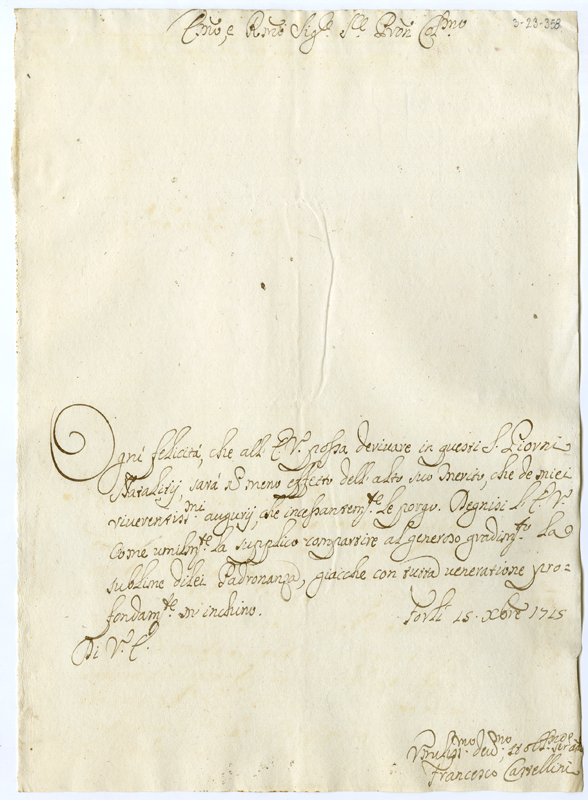 3-23-368
Em̃o, e Rmo Sig.r Sig.r Pron Col.mo
Ogni felicità, che all' E.V. possa derivare in questi S. Giorni
Natalitij, sarà nõ meno effetto dell' alto suo Merito, che de miei
riverentissmi augurij, che incessantem.te le porgo. Degnisi l' E.V.
come umilm.te la supplico compartire al generoso gradim.to la
sublime di lei Padronanza, giacche con tutta veneratione pro=
fondam.te m' inchino.
Forlì 15. Xbre 1715
Di V.E.
Umiliss.mo dev.mo
Francesco Cassellini